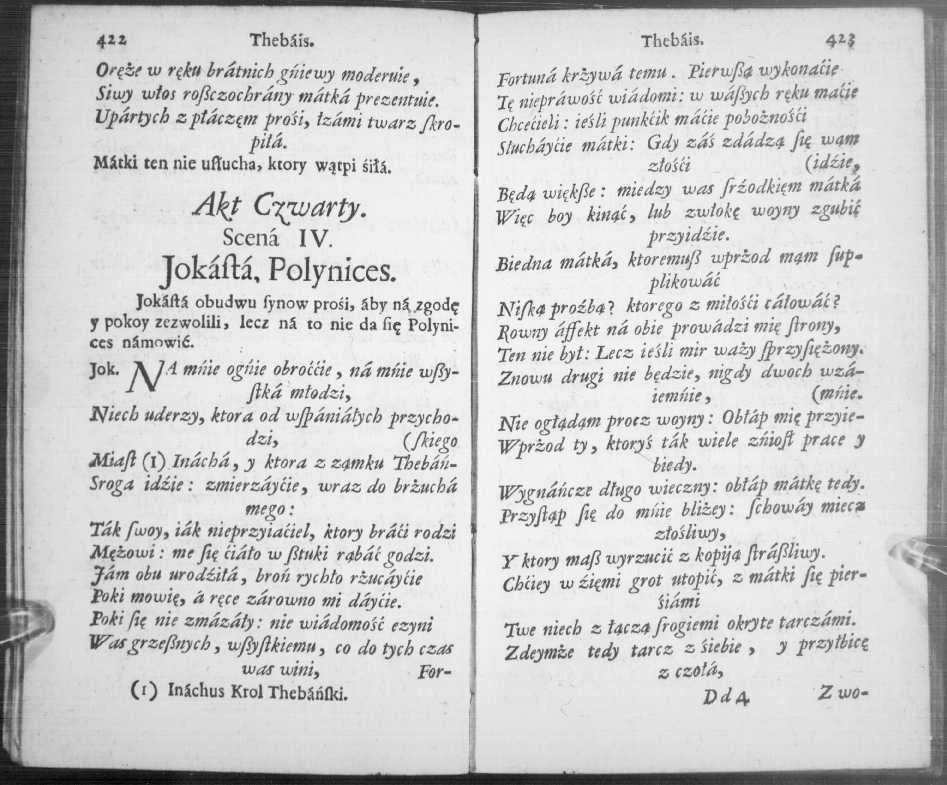 422 Thebáis.
Oręże w ręku brátnich gńiewy moderuie,
Siwy włos roßczochrány mátká prezentuie.
Upártych z płáczęm prośi, łzámi twarz ſkro-
piłá.
Mátki ten nie uſłucha, ktory wątpi śiłá.
Akt Czwarty.
Scená IV.
Jokáſtá, Polynices.
Jokáſtá obudwu ſynow prośi, áby ná zgodę
y pokoy zezwolili, lecz ná to nie da ſię Polyni-
ces námowić.
Jok. NA mńie ogńie obroććie, ná mńie wßy-
ſtká młodzi,
Niech uderzy, ktora od wſpániáłych przycho-
dzi, (ſkiego
Miaſt (1) Ináchá, y ktora z zamku Thebáń-
Sroga idźie: zmierzáyćie, wraz do brżuchá
mego:
Ták ſwoy, iák nieprzyiaćiel, ktory bráći rodzi
Mężowi: me ſię ćiáło w ßtuki rąbáć godzi.
Jám obu urodźiłá, broń rychło rżucáyćie
Poki mowię, á ręce zárowno mi dáyćie.
Poki ſię nie zmázáły: nie wiádomość czyni
Was grzeßnych, wßyſtkiemu, co do tych czas
was wini, For-
(1) Ináchus Krol Thebáńſki.
Thebáis. 423
Fortuná krżywá temu. Pierwßą wykonaćie
Tę niepráwość wiádomi: w wáßych ręku maćie
Chcećieli: ieśli punkćik máćie pobożnośći
Słucháyćie mátki: Gdy záś zdádzą ſię wąm
złośći (idźie,
Będą więkße: miedzy was ſrźodkięm mátká
Więc boy kinąć, lub zwłokę woyny zgubić
przyidźie.
Biedna mátká, ktoremuß wprżod mąm ſup-
plikowáć
Niſką proźbą? ktorego z miłośći cáłowáć?
Rowny áffekt ná obie prowádzi mię ſtrony,
Ten nie był: Lecz ieśli mir waży ſprzyſiężony.
Znowu drugi nie będzie, nigdy dwoch wzá-
iemńie, (mńie.
Nie ogłądąm procz woyny: Obłáp mię przyie-
Wprżod ty, ktoryś ták wiele zńioſt prace y
biedy.
Wygnáńcze długo wieczny: obłáp mátkę tedy.
Przyſtąp ſię do mńie bliżey: ſchowáy miecz
złośliwy,
Y ktory maß wyrzucić z kopiją ſtráßliwy.
Chćiey w źięmi grot utopić, z mátki ſię pier-
śiámi
Twe niech z łączą ſrogiemi okryte tarczámi.
Zdeymże tedy tarcz z śiebie, y przyłbicę
z czołá,
Dd4 Zwo-